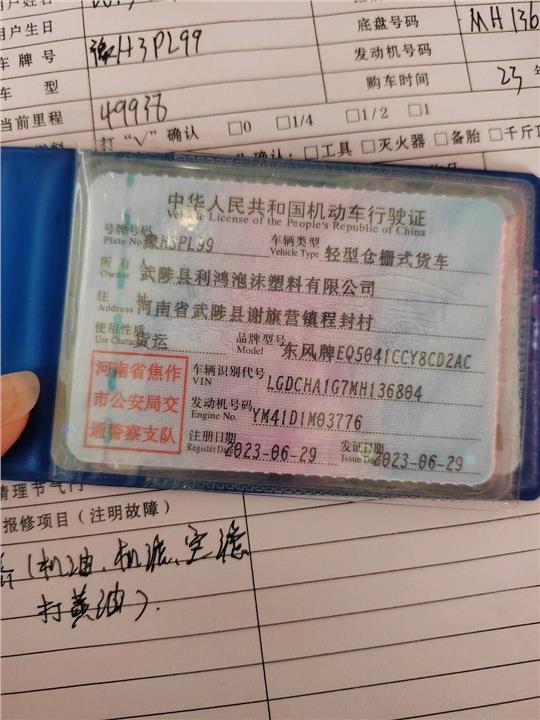 用户生日
底盘号码 MH136
车牌号 豫H3PL99
发动机号码
车型
购车时间 23年
当前里程 49938
打“√”确认 □0 □1/4 □1/2 □1
确认:□工具 □灭火器 □备胎 □千斤顶
中华人民共和国机动车行驶证
Vehicle License of the People's Republic of China
号牌号码 豫H3PL99 车辆类型 轻型仓栅式货车
Plate No. Vehicle Type
所有人 武陟县利鸿泡沫塑料有限公司
Owner
住址 河南省武陟县谢旗营镇程封村
Address
使用性质 货运 品牌型号 东风牌EQ5041CCY8CD2AC
Use Character Model
河南省焦作
市公安局交
通警察支队
车辆识别代号 LGDCHA1G7MH136804
VIN
发动机号码 YM41D1M03776
Engine No.
注册日期 2023-06-29 发证日期 2023-06-29
Register Date Issue Date
清理节气门
报修项目(注明故障)
(机油、机滤、空滤
打黄油).